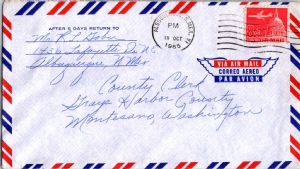 AFTER 5 DAYS RETURN TO
1436 Lafayette Dr. N.E.
Albuquerque, N. Mex
PM
19 OCT
1965
VIA AIR MAIL
CORREO AEREO
PAR AVION
County Clerk
Grays Harbor County
Montesano, Washington